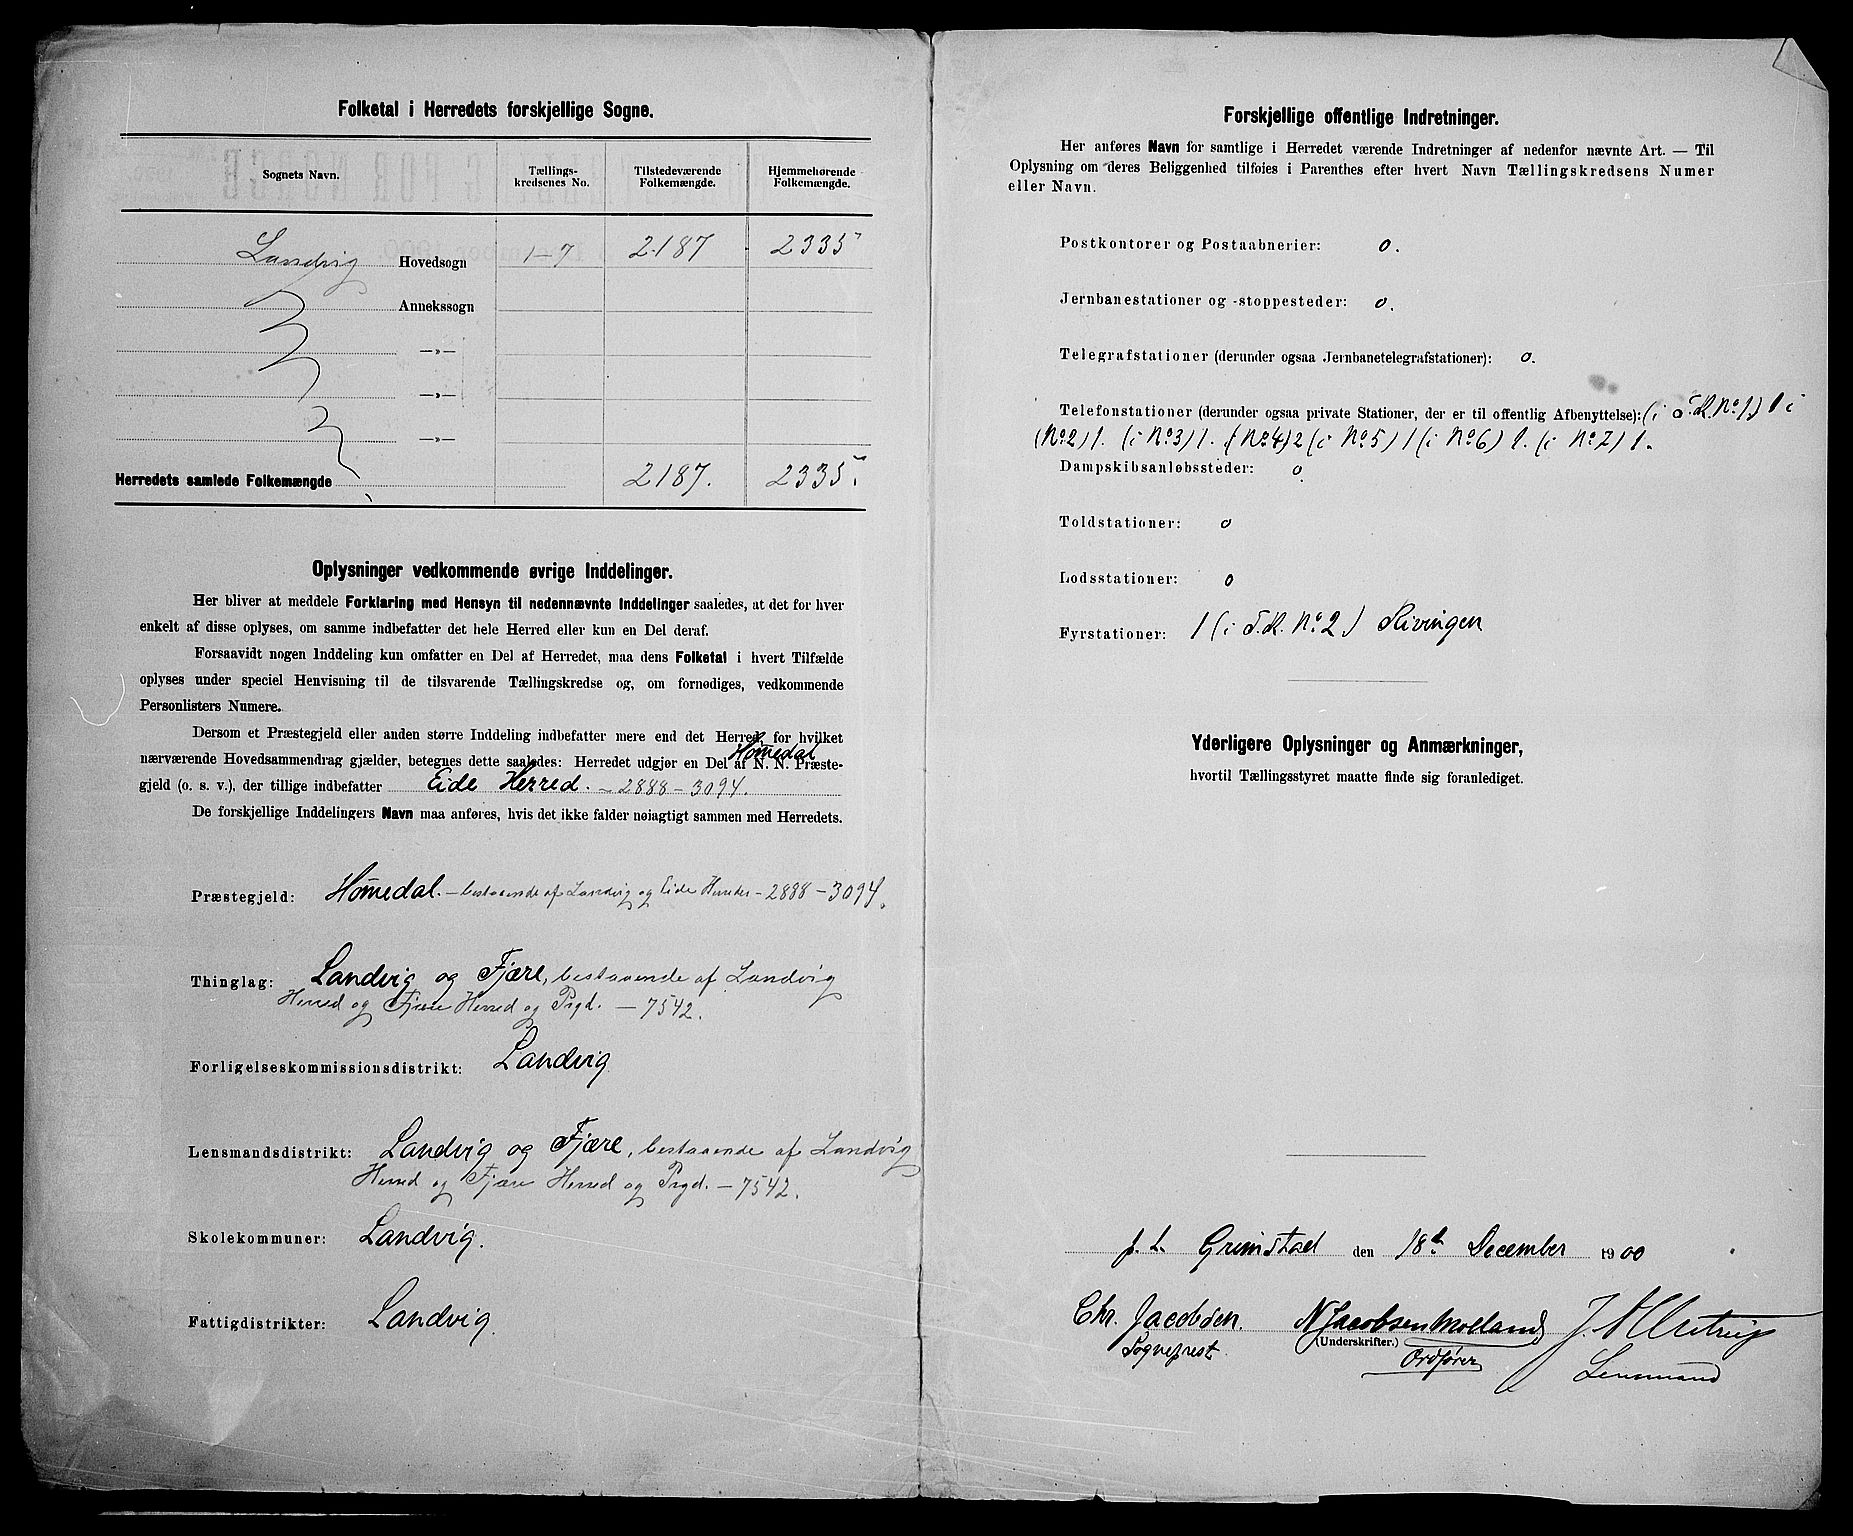 Folketal i Herredets forskjellige Sogne.
Sognets Navn. Tællings-kredsenes No. Tilstedeværende Folkemængde. Hjemmehørende Folkemængde.
Landvig Hovedsogn 1-7 2187 2335
Annekssogn
—»—
—»—
—»—
Herredets samlede Folkemængde 2187. 2335.
Oplysninger vedkommende øvrige Inddelinger.
Her bliver at meddele Forklaring med Hensyn til nedennævnte Inddelinger saaledes, at det for hver
enkelt af disse oplyses, om samme indbefatter det hele Herred eller kun en Del deraf.
Forsaavidt nogen Inddeling kun omfatter en Del af Herredet, maa dens Folketal i hvert Tilfælde
oplyses under speciel Henvisning til de tilsvarende Tællingskredse og, om fornødiges, vedkommende
Personlisters Numere.
Dersom et Præstegjeld eller anden større Inddeling indbefatter mere end det Herred, for hvilket
Hommedal
nærværende Hovedsammendrag gjælder, betegnes dette saaledes: Herredet udgjør en Del af N. N. Præste-
gjeld (o. s. v.), der tillige indbefatter Eide Herred. - 2888 - 3094.
De forskjellige Inddelingers Navn maa anføres, hvis det ikke falder nøiagtigt sammen med Herredets.
Præstegjeld: Hommedal. - bestaaende af Landvig og Eide Herreder - 2888 - 3094.
Thinglag: Landvig og Fjære, bestaaende af Landvig
Herred og Fjære Herred og Prgd. - 7542.
Forligelseskommissionsdistrikt: Landvig
Lensmandsdistrikt: Landvig og Fjære, bestaaende af Landvig
Herred og Fjære Herred og Prgd. - 7542.
Skolekommuner: Landvig.
Fattigdistrikter: Landvig.
Forskjellige offentlige Indretninger.
Her anføres Navn for samtlige i Herredet værende Indretninger af nedenfor nævnte Art. — Til
Oplysning om deres Beliggenhed tilføies i Parenthes efter hvert Navn Tællingskredsens Numer
eller Navn.
Postkontorer og Postaabnerier: 0.
Jernbanestationer og -stoppesteder: 0.
Telegrafstationer (derunder ogsaa Jernbanetelegrafstationer): 0.
Telefonstationer (derunder ogsaa private Stationer, der er til offentlig Afbenyttelse): (i T.K. No 1) 1 i
(No 2) 1. (i No 3) 1. (No 4) 2 (i No 5) 1 (i No 6) 1. (i No 7) 1.
Dampskibsanløbssteder: 0
Toldstationer: 0
Lodsstationer: 0
Fyrstationer: 1 (i T.K. No 2) Rivingen
Yderligere Oplysninger og Anmærkninger,
hvortil Tællingsstyret maatte finde sig foranlediget.
p. t. Grimstad den 18d December 1900
Chr. Jacobsen. N Jacobsen Molland
(Underskrifter.)
Sogneprest. Ordfører Lensmand